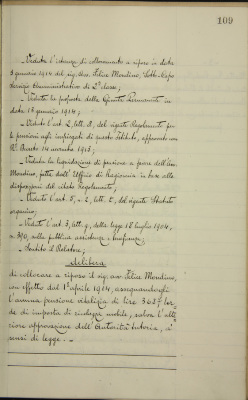 109
Veduta l'istanza di collocamento a riposo in data
9 gennaio 1914 del sig. avv. Felice Mondino, Sotto-Capo
Servizio Amministrativo di 2ª classe;
Veduta la proposta della Giunta Permanente in
data 16 gennaio 1914;
Veduto l'art. 2, lett. B, del vigente Regolamento per
le pensioni agli impiegati di questo Istituto, approvato con
R.º Decreto 14 novembre 1913;
Veduta la liquidazione di pensione a favore dell'avv.
Mondino, fatta dall'Ufficio di Ragioneria in base alle
disposizioni del citato Regolamento;
Veduto l'art. 5, lett. c, del vigente Statuto
organico;
Veduto l'art. 3, lett. g, della legge 18 luglio 1904,
n. 390, sulla pubblica assistenza e beneficenza;
Sentito il Relatore;
delibera
di collocare a riposo il sig. avv. Felice Mondino,
con effetto dal 1º aprile 1914, assegnandogli
l'annua pensione vitalizia di lire lor-
de di imposta di ricchezza mobile, salva l'ulte-
riore approvazione dell'Autorità tutoria, a'
sensi di legge. -